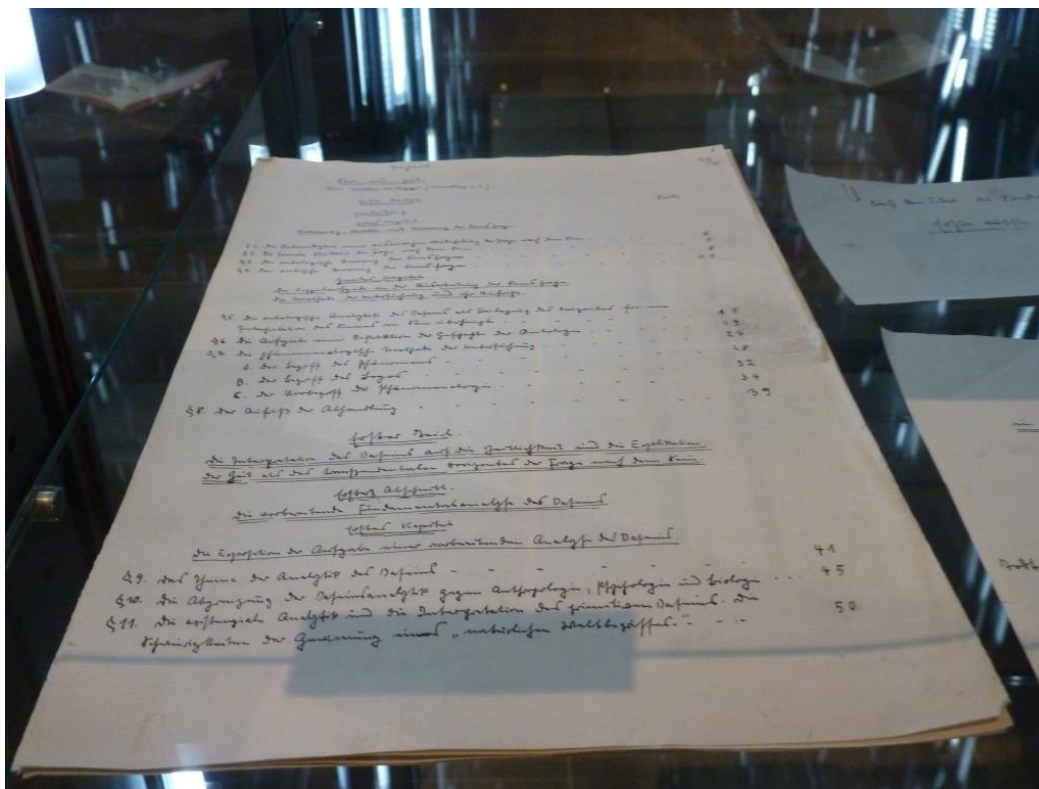 Inhalt
Sein und Zeit
von Martin Heidegger (Marburg a. L.)
Seite
Erste Hälfte
Einleitung
Erstes Kapitel
Notwendigkeit, Struktur und Vorrang der Seinsfrage
§ 1. Die Notwendigkeit einer ausdrücklichen Wiederholung der Frage nach dem Sein
§ 2. Die formale Struktur der Frage nach dem Sein 5
§ 3. Der ontologische Vorrang der Seinsfrage 8
§ 4. Der ontische Vorrang der Seinsfrage 11
Zweites Kapitel
Die Doppelaufgabe in der Ausarbeitung der Seinsfrage
Die Methode der Untersuchung und ihr Aufriß.
§ 5. Die ontologische Analytik des Daseins als Freilegung des Horizontes für eine
Interpretation des Sinnes von Sein überhaupt 15
§ 6. Die Aufgabe einer Destruktion der Geschichte der Ontologie 19
§ 7. Die phänomenologische Methode der Untersuchung 27
A. Der Begriff des Phänomens 28
B. Der Begriff des Logos 32
C. Der Vorbegriff der Phänomenologie 34
§ 8. Der Aufriß der Abhandlung 39
Erster Teil.
Die Interpretation des Daseins auf die Zeitlichkeit und die Explikation
der Zeit als des transzendentalen Horizontes der Frage nach dem Sein
Erster Abschnitt.
Die vorbereitende Fundamentalanalyse des Daseins
Erstes Kapitel
Die Exposition der Aufgabe einer vorbereitenden Analyse des Daseins.
§ 9. Das Thema der Analytik des Daseins - - - - - - 41
§ 10. Die Abgrenzung der Daseinsanalytik gegen Anthropologie, Psychologie und Biologie ... 45
§ 11. Die existenziale Analytik und die Interpretation des primitiven Daseins. Die
Schwierigkeiten der Gewinnung eines „natürlichen Weltbegriffes." - - - 50